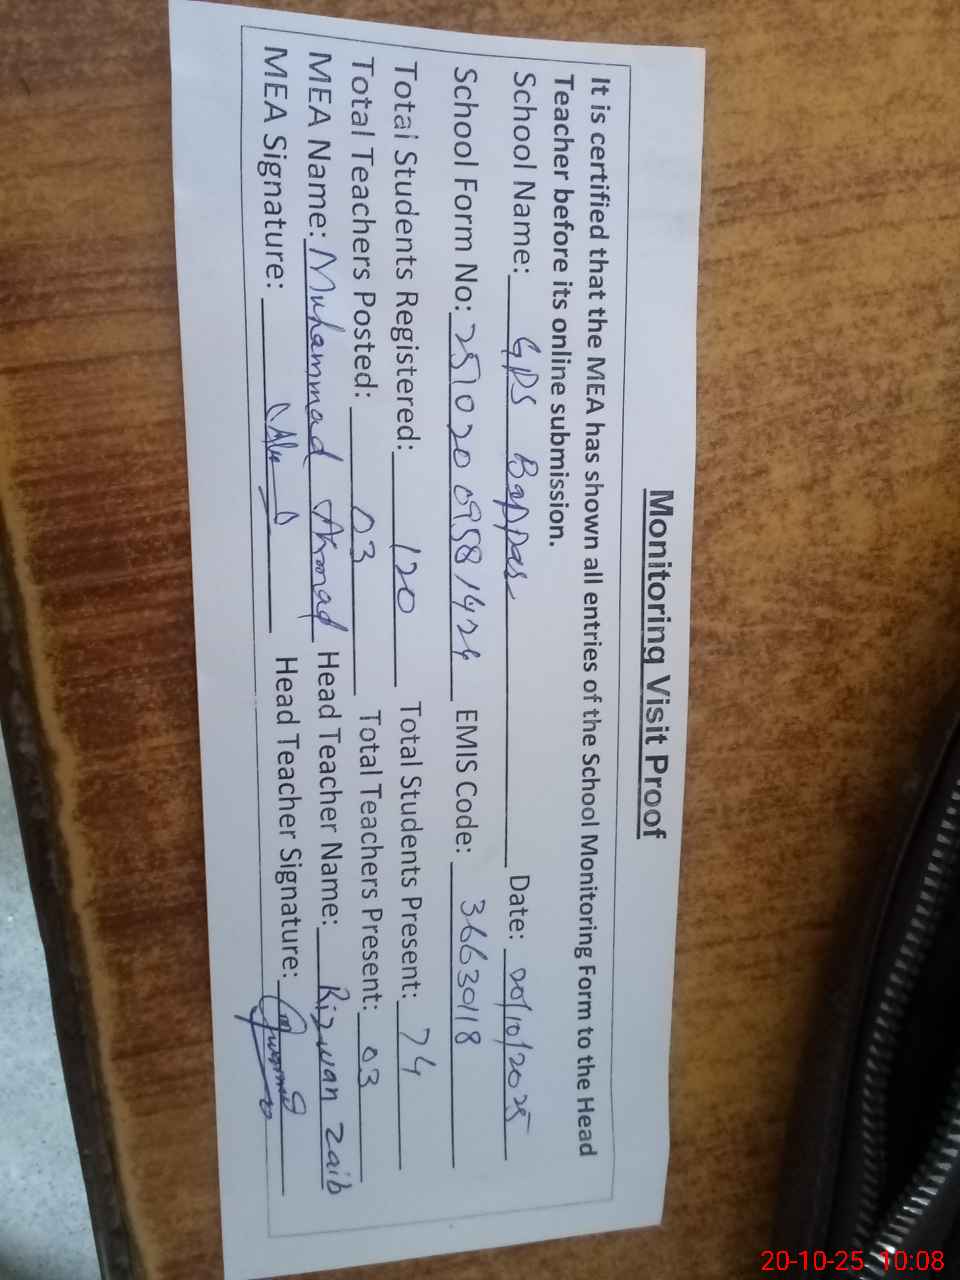 Monitoring Visit Proof
It is certified that the MEA has shown all entries of the School Monitoring Form to the Head
Teacher before its online submission.
School Name: GPS Bappas Date: 20/10/2025
School Form No: 25102009581424 EMIS Code: 36630118
Total Students Registered: 120 Total Students Present: 74
Total Teachers Posted: 03 Total Teachers Present: 03
MEA Name: Muhammad Ahmad Head Teacher Name: Rizwan Zaib
MEA Signature: Head Teacher Signature:
20-10-25 10:08